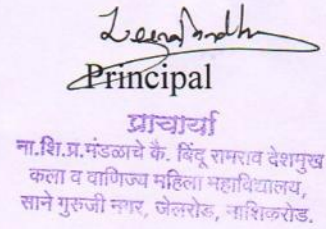 Principal
प्राचार्या
ना.शि.प्र.मंडळाचे कै. बिंदू रामराव देशमुख
कला व वाणिज्य महिला महाविद्यालय,
साने गुरुजी नगर, जेलरोड, नाशिकरोड.